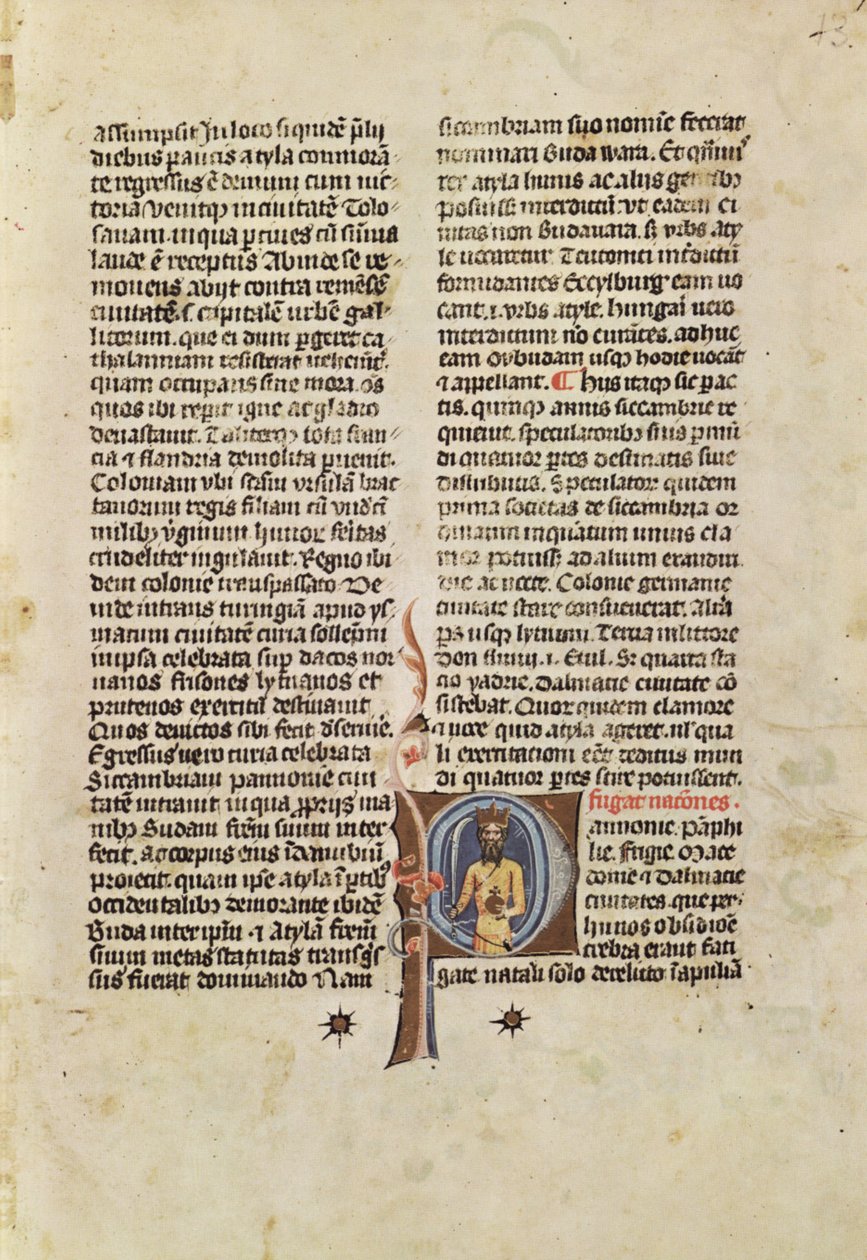 assumpsit In loco siquidē p̄lij
diebus paucis atyla commorā
te regressus ē demum cum vic
toria venitqꝫ in civitatē Tolo
sanam. in qua p cives cū sūma
laude ē receptus Abinde se re
movens abijt contra remēsē
civitatē. s. capitalē urbē gal
licorum. que ei dum pgeret ca
thalauniam resisterat vehem̄t̄.
quam occupans sine mora. oēs
quos ibi repit igne ac gladio
devastavit. Taliterqꝫ tota fran
cia ⁊ flandria demolita pvenit.
Coloniam vbi stām vrsulā brac
tanorum regis filiam cū vndecī
milibꝫ v̄ginum hunor̄ feritas
crudeliter iugulavit. Regno ibi
dem colonie transpassato De
inde intrans turingiā apud ys.
nacum civitatē curia sollēpni
in ipsa celebrata sup dacos nor
vanos frisones lytvanos et
prutenos exercitū destinavit
Quos devictos sibi fecit d̄servire.
Egressus vero curia celebrata
Siccambriam pannonie civi
tatē intravit in qua p̄prijs ma
nibꝫ Budam frēm suum inter
fecit. ac corpus eius ī danubiū
proiecit. quam ip̄e atyla ī ptibꝫ
occidentalibꝫ demorante ibidē
Buda inter ip̄m ⁊ Atylā frēm
suum metas statutas transgs̄
sus fuerat dominando Nam
siccambriam suo nomīe fecerat
nominari Buda wara. Et q̄mvis
rex atyla hunis ac alijs gentibꝫ
posuisset interdictū. vt eadem ci
vitas non Budavara. s̄ vrbs aty
le vocaretur Teutonici int̄dictū
formidantes Eccylburg eam vo
cant. i. vrbs atyle. hungar̄i vero
interdictum nō curātes. adhuc
eam Ovbudam usqꝫ hodie vocāt
⁊ appellant. ¶ Hiis itaqꝫ sic pac
tis. quinqꝫ annis siccambrie re
quievit. speculatoribꝫ suis p mū
di quatuor ptes destinatis sive
distributis. Speculator̄ quidem
prima societas de siccambria or
dinatim inquātum unius cla
mor potuisset ad alium exaudiri
die ac nocte. Colonie germanie
civitate stare consueverat. Altā
ps̄ usqꝫ lytvam. Tercia in littore
Don fluvij. i. Etil. S̄ quarta sta
cio yadrie. Dalmacie civitate cō
sistebat. Quor̄ quidem clamore
⁊ voce quid atyla ageret. vl̄ qua
li exercitationi eēt deditus mun
di quatuor ptes scire potuissent.
fugat nacōnes.
Pannonie. Pāphi
lie. frigie. Mace
donie ⁊ Dalmacie
civitates. que per
hunos obsidiōe
crebra erant fati
gate natali solo derelicto ī apuliā